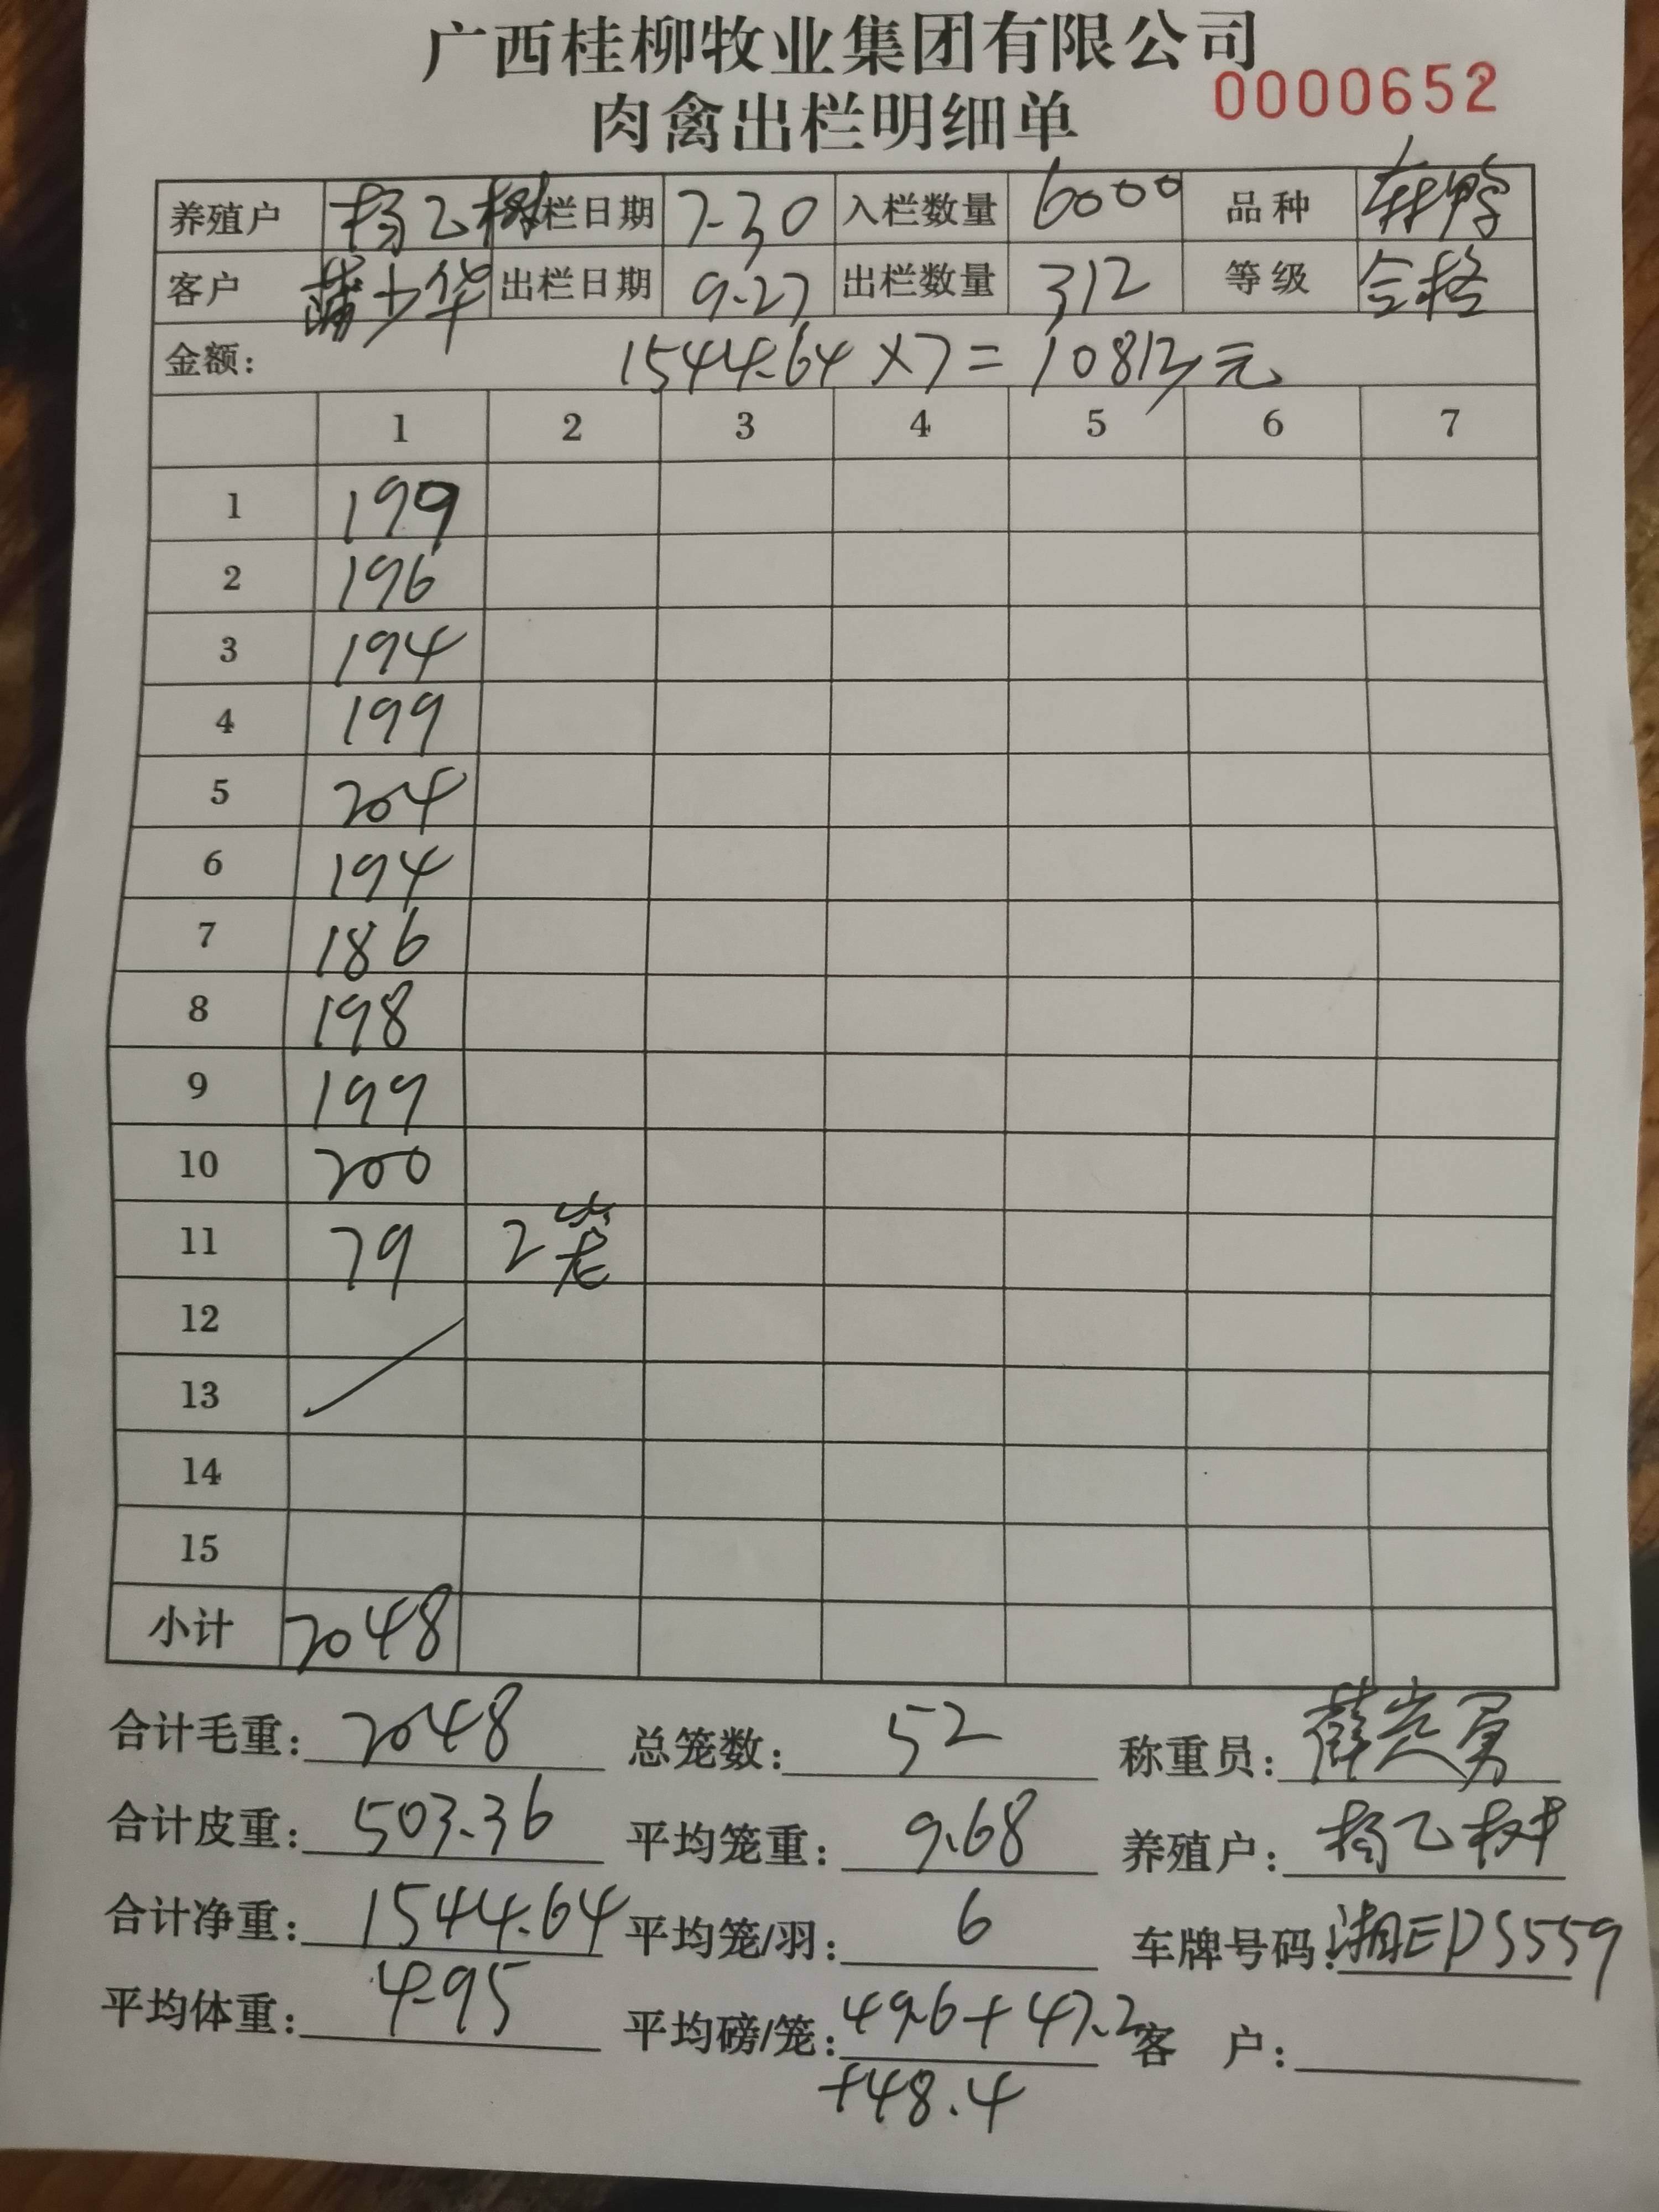 广西桂柳牧业集团有限公司
肉禽出栏明细单 0000652
养殖户 杨乙树 栏日期 7-30 入栏数量 6000 品种 鸭
客户 蒲少华 出栏日期 9-27 出栏数量 312 等级 合格
金额: 1544.64×7=10812元
1 2 3 4 5 6 7
1 199
2 196
3 194
4 199
5 204
6 194
7 186
8 198
9 199
10 200
11 79 2笼
12
13
14
15
小计 2048
合计毛重: 2048 总笼数: 52 称重员: 薛
合计皮重: 503.36 平均笼重: 9.68 养殖户: 杨乙树
合计净重: 1544.64 平均笼/羽: 6 车牌号码: 湘EDS559
平均体重: 4.95 平均磅/笼: 49.6+47.2 客 户:
+48.4